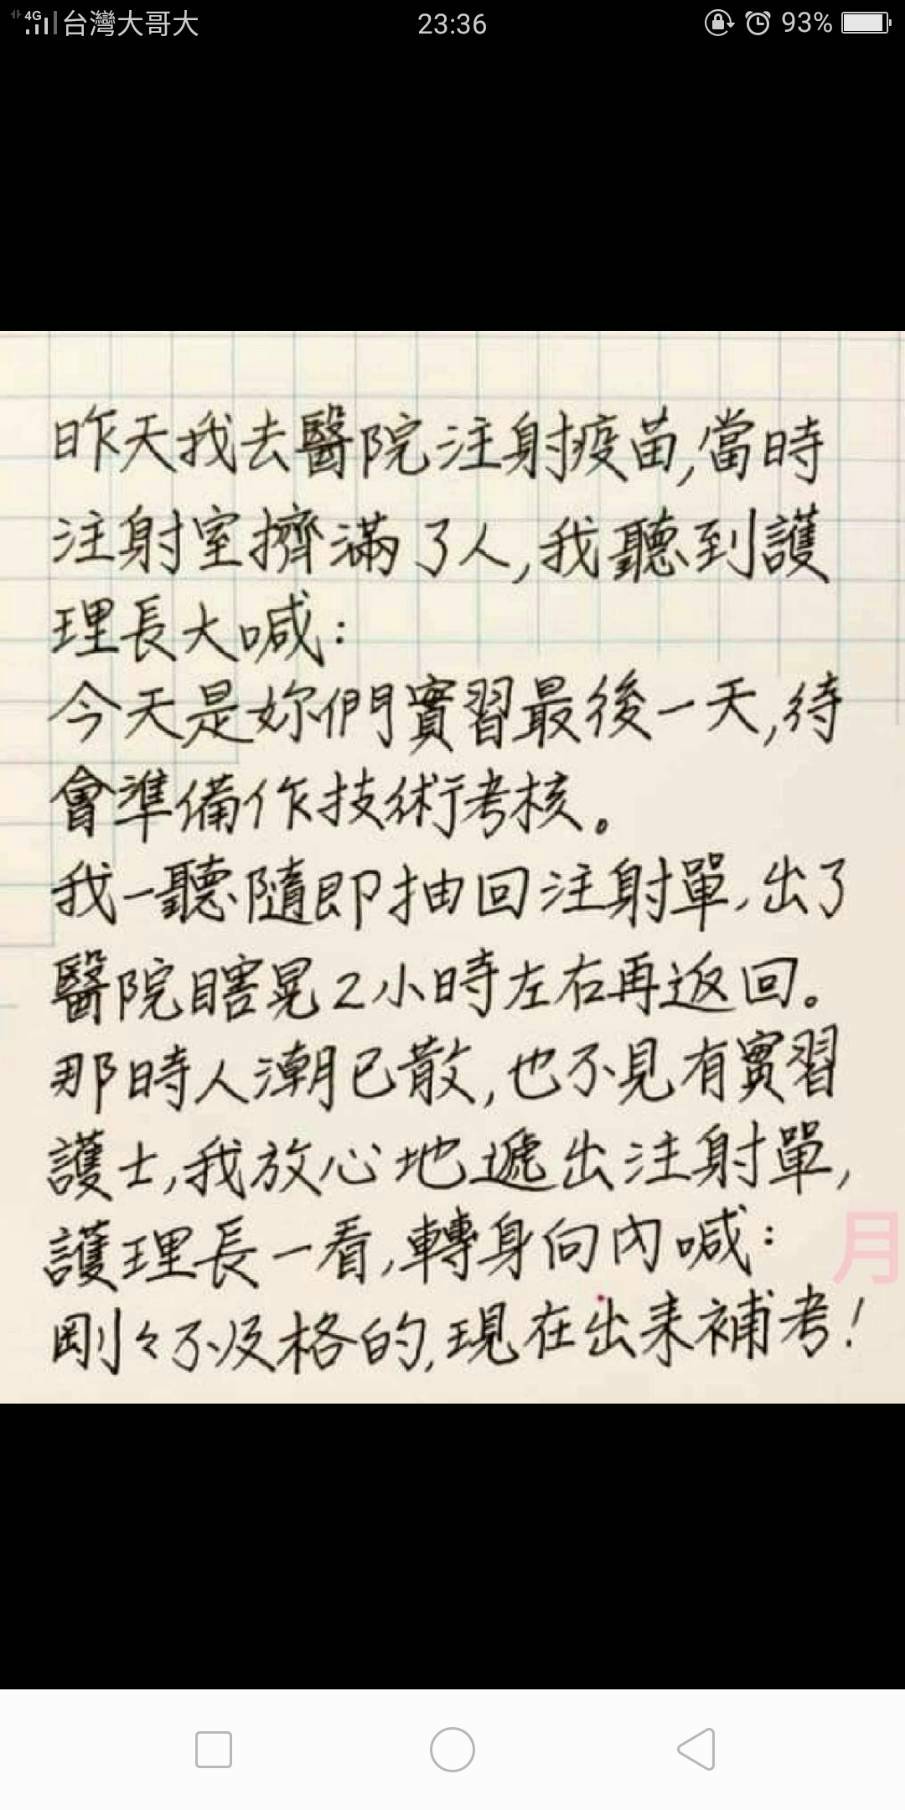 4G 台灣大哥大 23:36 93%
昨天我去醫院注射疫苗,當時
注射室擠滿了人,我聽到護
理長大喊:
今天是妳們實習最後一天,待
會準備作技術考核。
我一聽隨即抽回注射單,出了
醫院瞎晃2小時左右再返回。
那時人潮已散,也不見有實習
護士,我放心地遞出注射單,
護理長一看,轉身向內喊:
月
剛々不及格的,現在出来補考!